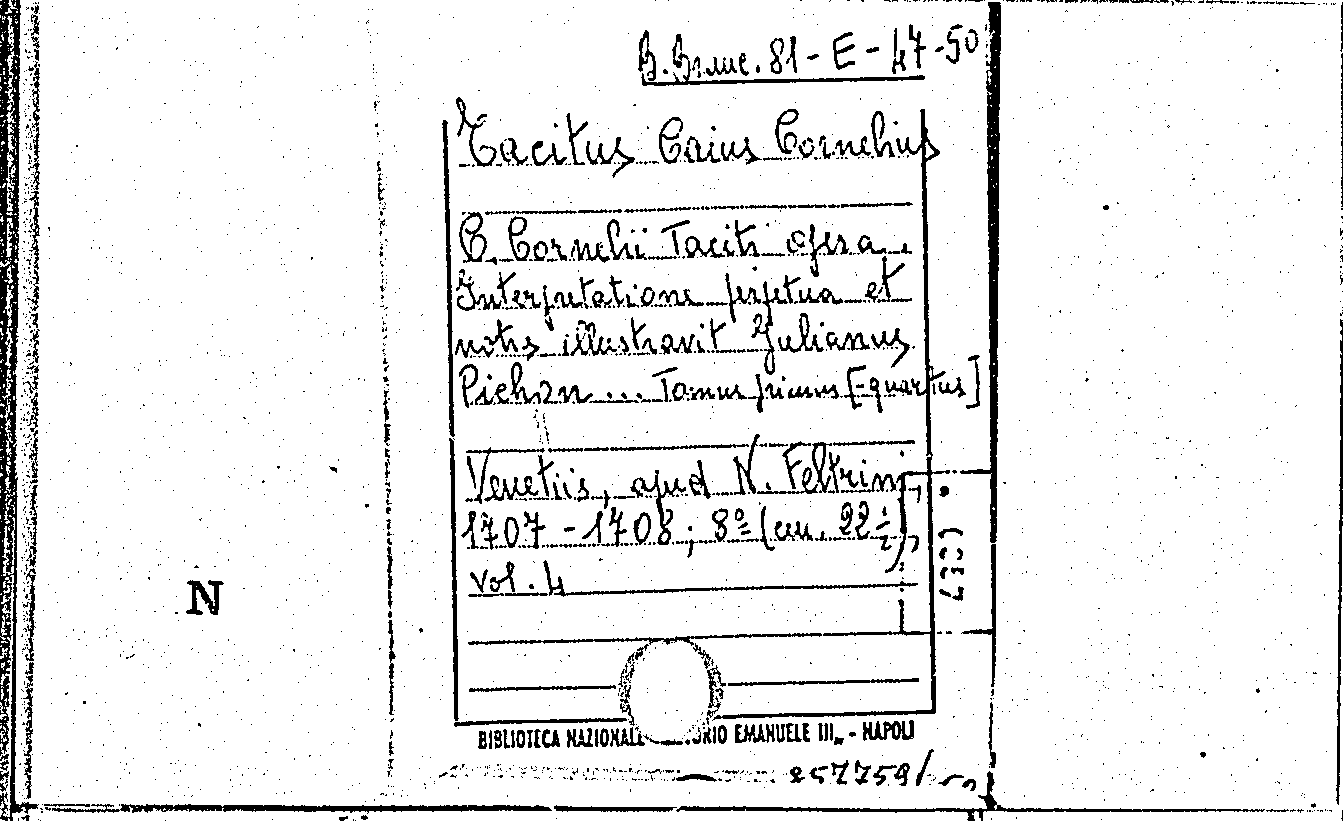 B. Branc. 81 - E - 47-50
Tacitus Caius Cornelius
C. Cornelii Taciti opera.
Interpretatione perpetua et
notis illustravit Julianus
Pichon... Tomus primus [-quartus]
Venetiis, apud N. Feltrini,
1707 - 1708; 8º (cm. 22 ½),
vol. 4
N
BIBLIOTECA NAZIONALE EMANUELE III„ - NAPOLI
257759/